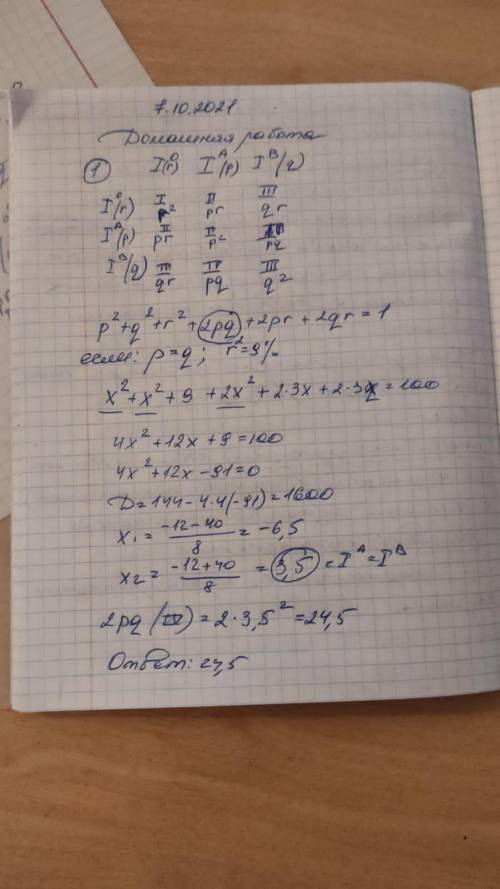 7.10.2021
Домашняя работа
① I⁰(r) Iᴬ(p) Iᴮ(q)
I⁰(r) I r² II pr III qr
Iᴬ(p) II pr II p² IV pq
Iᴮ(q) III qr IV pq III q²
p²+q²+r²+2pq+2pr+2qr=1
если: p=q; r²=9%
x²+x²+9+2x²+2·3x+2·3x=100
4x²+12x+9=100
4x²+12x-91=0
D=144-4·4(-91)=1600
x₁=(-12-40)/8=-6,5
x₂=(-12+40)/8=3,5=Iᴬ=Iᴮ
2pq(IV)=2·3,5²=24,5
Ответ: 24,5